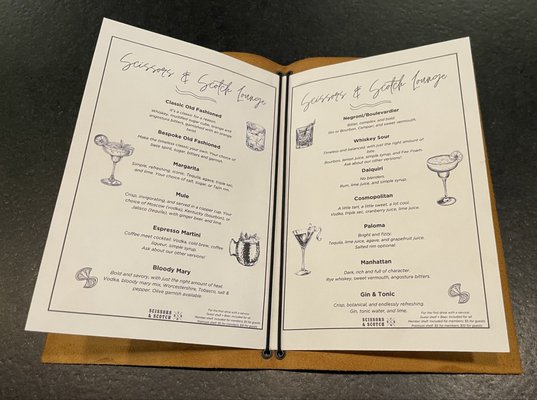 Scissors & Scotch Lounge
Classic Old Fashioned
It's a classic for a reason.
whiskey, muddled sugar cube, orange and
angostura bitters, garnished with an orange
twist
Bespoke Old Fashioned
Make the timeless classic your own. Your choice of
base spirit, sugar, bitters and garnish.
Margarita
Simple, refreshing, iconic. Tequila, agave, triple sec,
and lime. Your choice of salt, sugar, or Tajin rim.
Mule
Crisp, invigorating, and served in a copper cup. Your
choice of Moscow (vodka), Kentucky (bourbon), or
Jalisco (tequila), with ginger beer, and lime.
Espresso Martini
Coffee meet cocktail. Vodka, cold brew, coffee
liqueur, simple syrup.
Ask about our other versions!
Bloody Mary
Bold and savory, with just the right amount of heat
Vodka, bloody mary mix, Worcestershire, Tobasco, salt &
pepper. Olive garnish available.
SCISSORS
& SCOTCH
For the first drink with a service:
Guest shelf + Beer included for all
Member shelf included for members; $5 for guests
Premium shelf: $5 for members; $10 for guests
Scissors & Scotch Lounge
Negroni/Boulevardier
Bitter, complex, and bold.
Gin or Bourbon, Campari, and sweet vermouth.
Whiskey Sour
Timeless and balanced, with just the right amount of
Bourbon, lemon juice, simple syrup, and Fee Foam.
Ask about our other versions!
Daiquiri
No blenders.
Rum, lime juice, and simple syrup.
Cosmopolitan
A little tart, a little sweet, a lot cool.
Vodka, triple sec, cranberry juice, lime juice.
Paloma
Bright and fizzy.
Tequila, lime juice, agave, and grapefruit juice.
Salted rim optional!
Manhattan
Dark, rich and full of character.
Rye whiskey, sweet vermouth, angostura bitters.
Gin & Tonic
Crisp, botanical, and endlessly refreshing.
Gin, tonic water, and lime.
SCISSORS
& SCOTCH
For the first drink with a service:
Guest shelf + Beer included for all
Member shelf included for members; $5 for guests
Premium shelf: $5 for members; $10 for guests